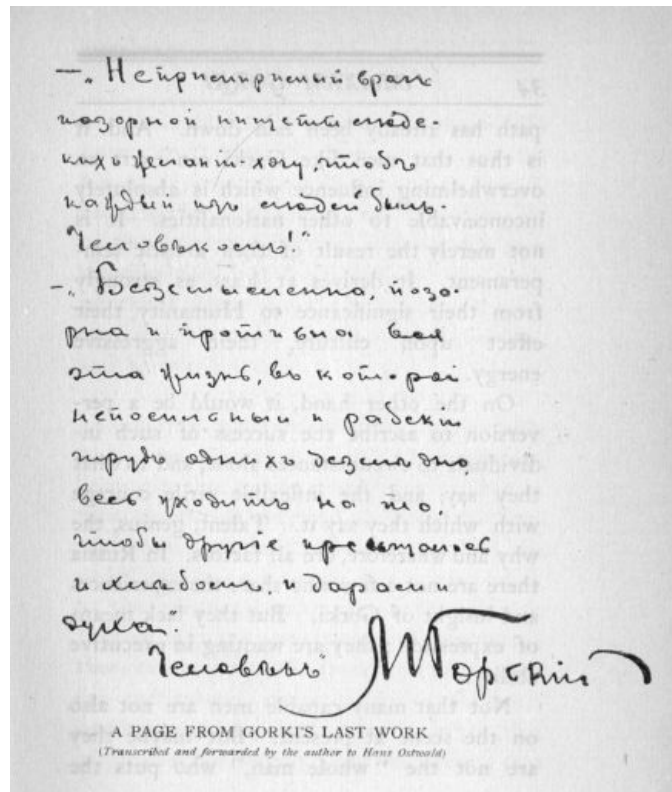 —. Непримиримый врагъ
позорной нищеты людс-
кихъ желаній, хочу, чтобъ
каждый изъ людей былъ
Человѣкомъ!"
—. Безсмысленна, позо-
рна и противна вся
эта жизнь, въ которой
непосильный и рабскій
трудъ однихъ безслѣдно
весь уходитъ на то,
чтобы другіе пресыщались
и хлѣбомъ и дарами
духа.
Человѣкъ М Горькій
A PAGE FROM GORKI'S LAST WORK
(Transcribed and forwarded by the author to Hans Ostwald)